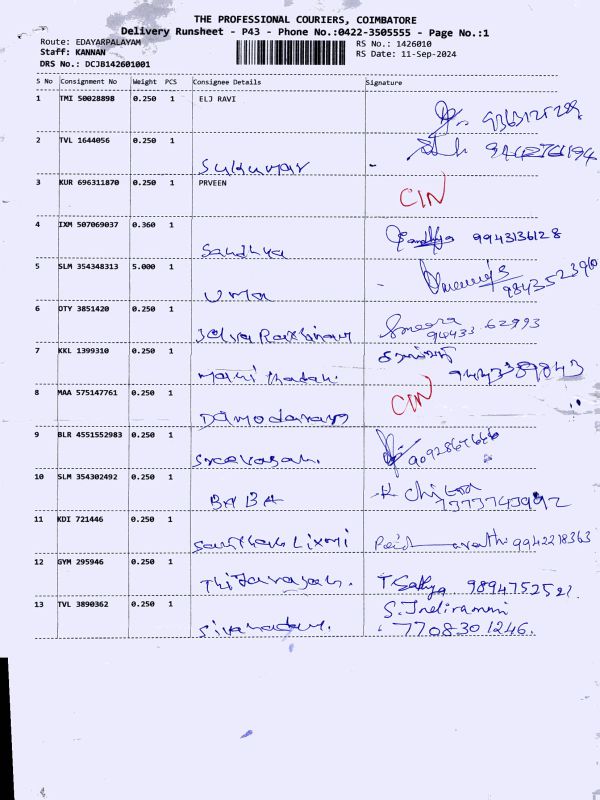 THE PROFESSIONAL COURIERS, COIMBATORE
Delivery Runsheet - P43 - Phone No.:0422-3505555 - Page No.:1
Route: EDAYARPALAYAM
RS No.: 1426010
Staff: KANNAN
RS Date: 11-Sep-2024
DRS No.: DCJB142601001
S No Consignment No Weight PCS Consignee Details Signature
1 TMI 50028898 0.250 1 ELJ RAVI
2 TVL 1644056 0.250 1
Sukumar
3 KUR 696311870 0.250 1 PRVEEN
CIN
4 IXM 507069037 0.360 1
Sandhya 9943136128
5 SLM 354348313 5.000 1
Uma 9843523960
6 OTY 3851420 0.250 1
Smeera
94433 62993
7 KKL 1399310 0.250 1
8 MAA 575147761 0.250 1
Damodaran CIN
9 BLR 4551552983 0.250 1
10 SLM 354302492 0.250 1
BABA K Chitra
11 KDI 721446 0.250 1
9942218363
12 GYM 295946 0.250 1
T. Sathya
13 TVL 3890362 0.250 1
S. Indirammi
7708301246.